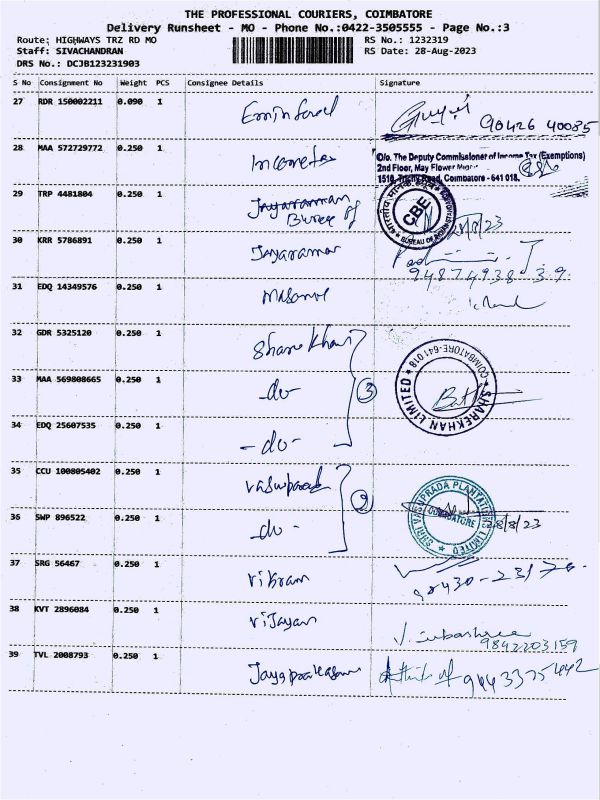 THE PROFESSIONAL COURIERS, COIMBATORE
Delivery Runsheet - MO - Phone No.:0422-3505555 - Page No.:3
Route: HIGHWAYS TRZ RD MO
RS No.: 1232319
Staff: SIVACHANDRAN
RS Date: 28-Aug-2023
DRS No.: DCJB123231903
S No Consignment No Weight PCS Consignee Details Signature
27 RDR 150002211 0.090 1
90426 40085
28 MAA 572729772 0.250 1 Incometax
O/o. The Deputy Commissioner of Income Tax (Exemptions)
2nd Floor, May Flower
1510, Trichy Road, Coimbatore - 641 018.
29 TRP 4481804 0.250 1 Jayaraman
Bureau of
CBE
BUREAU OF
28/8/23
30 KRR 5786891 0.250 1 Jayaraman
9487493839
31 EDQ 14349576 0.250 1
32 GDR 5325120 0.250 1 Sharekhan
33 MAA 569808665 0.250 1 -do- 3
SHAREKHAN LIMITED
COIMBATORE-641 018
34 EDQ 25607535 0.250 1 -do-
35 CCU 100805402 0.250 1 Vasuprada
2
SHRI VASUPRADA PLANTATIONS LIMITED
COIMBATORE
36 SWP 896522 0.250 1 -do-
28/8/23
37 SRG 56467 0.250 1 Vikram
38 KVT 2896084 0.250 1 Vijayan
V. Subashree
9842203159
39 TVL 2008793 0.250 1 Jayaprakasam